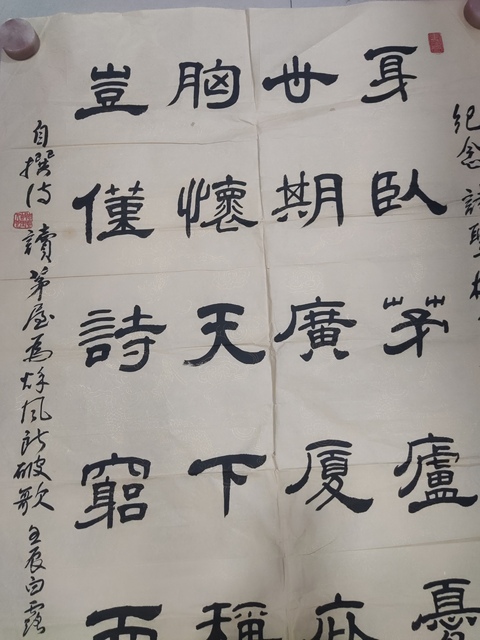 紀念詩聖杜
身臥茅廬憂
世期廣厦庇
胸懷天下稱
豈僅詩窮而
自撰詩 讀茅屋為秋風所破歌 壬辰白露